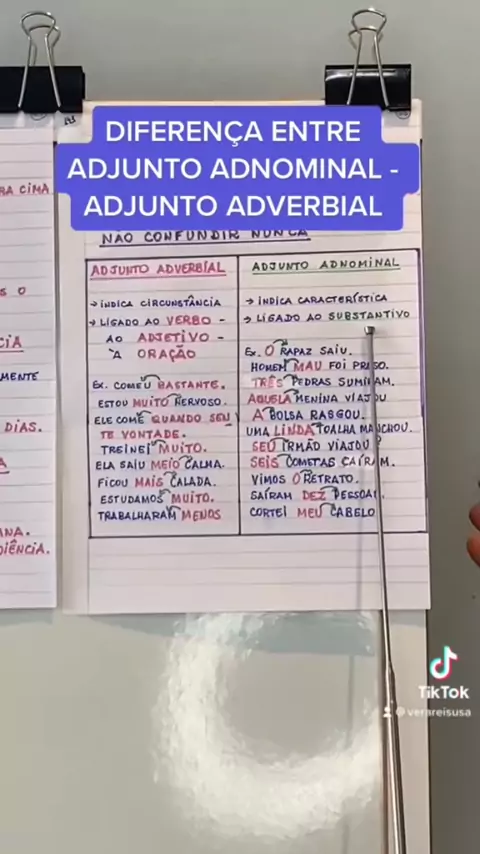 DIFERENÇA ENTRE
ADJUNTO ADNOMINAL -
ADJUNTO ADVERBIAL
NÃO CONFUNDIR NUNCA
RA CIMA
S O
CIA
MENTE
DIAS.
A
ANA.
DIÊNCIA.
ADJUNTO ADVERBIAL
→ INDICA CIRCUNSTÂNCIA
→ LIGADO AO VERBO -
AO ADJETIVO -
À ORAÇÃO
EX. COMEU BASTANTE.
ESTOU MUITO NERVOSO.
ELE COME QUANDO SEN
TE VONTADE.
TREINEI MUITO.
ELA SAIU MEIO CALMA.
FICOU MAIS CALADA.
ESTUDAMOS MUITO.
TRABALHARAM MENOS
ADJUNTO ADNOMINAL
→ INDICA CARACTERÍSTICA
→ LIGADO AO SUBSTANTIVO
EX. O RAPAZ SAIU.
HOMEM MAU FOI PRESO.
TRÊS PEDRAS SUMIRAM.
AQUELA MENINA VIAJOU
A BOLSA RASGOU.
UMA LINDA TOALHA MANCHOU.
SEU IRMÃO VIAJOU?
SEIS COMETAS CAÍRAM.
VIMOS O RETRATO.
SAÍRAM DEZ PESSOAS
CORTEI MEU CABELO
TikTok
@verareisusa